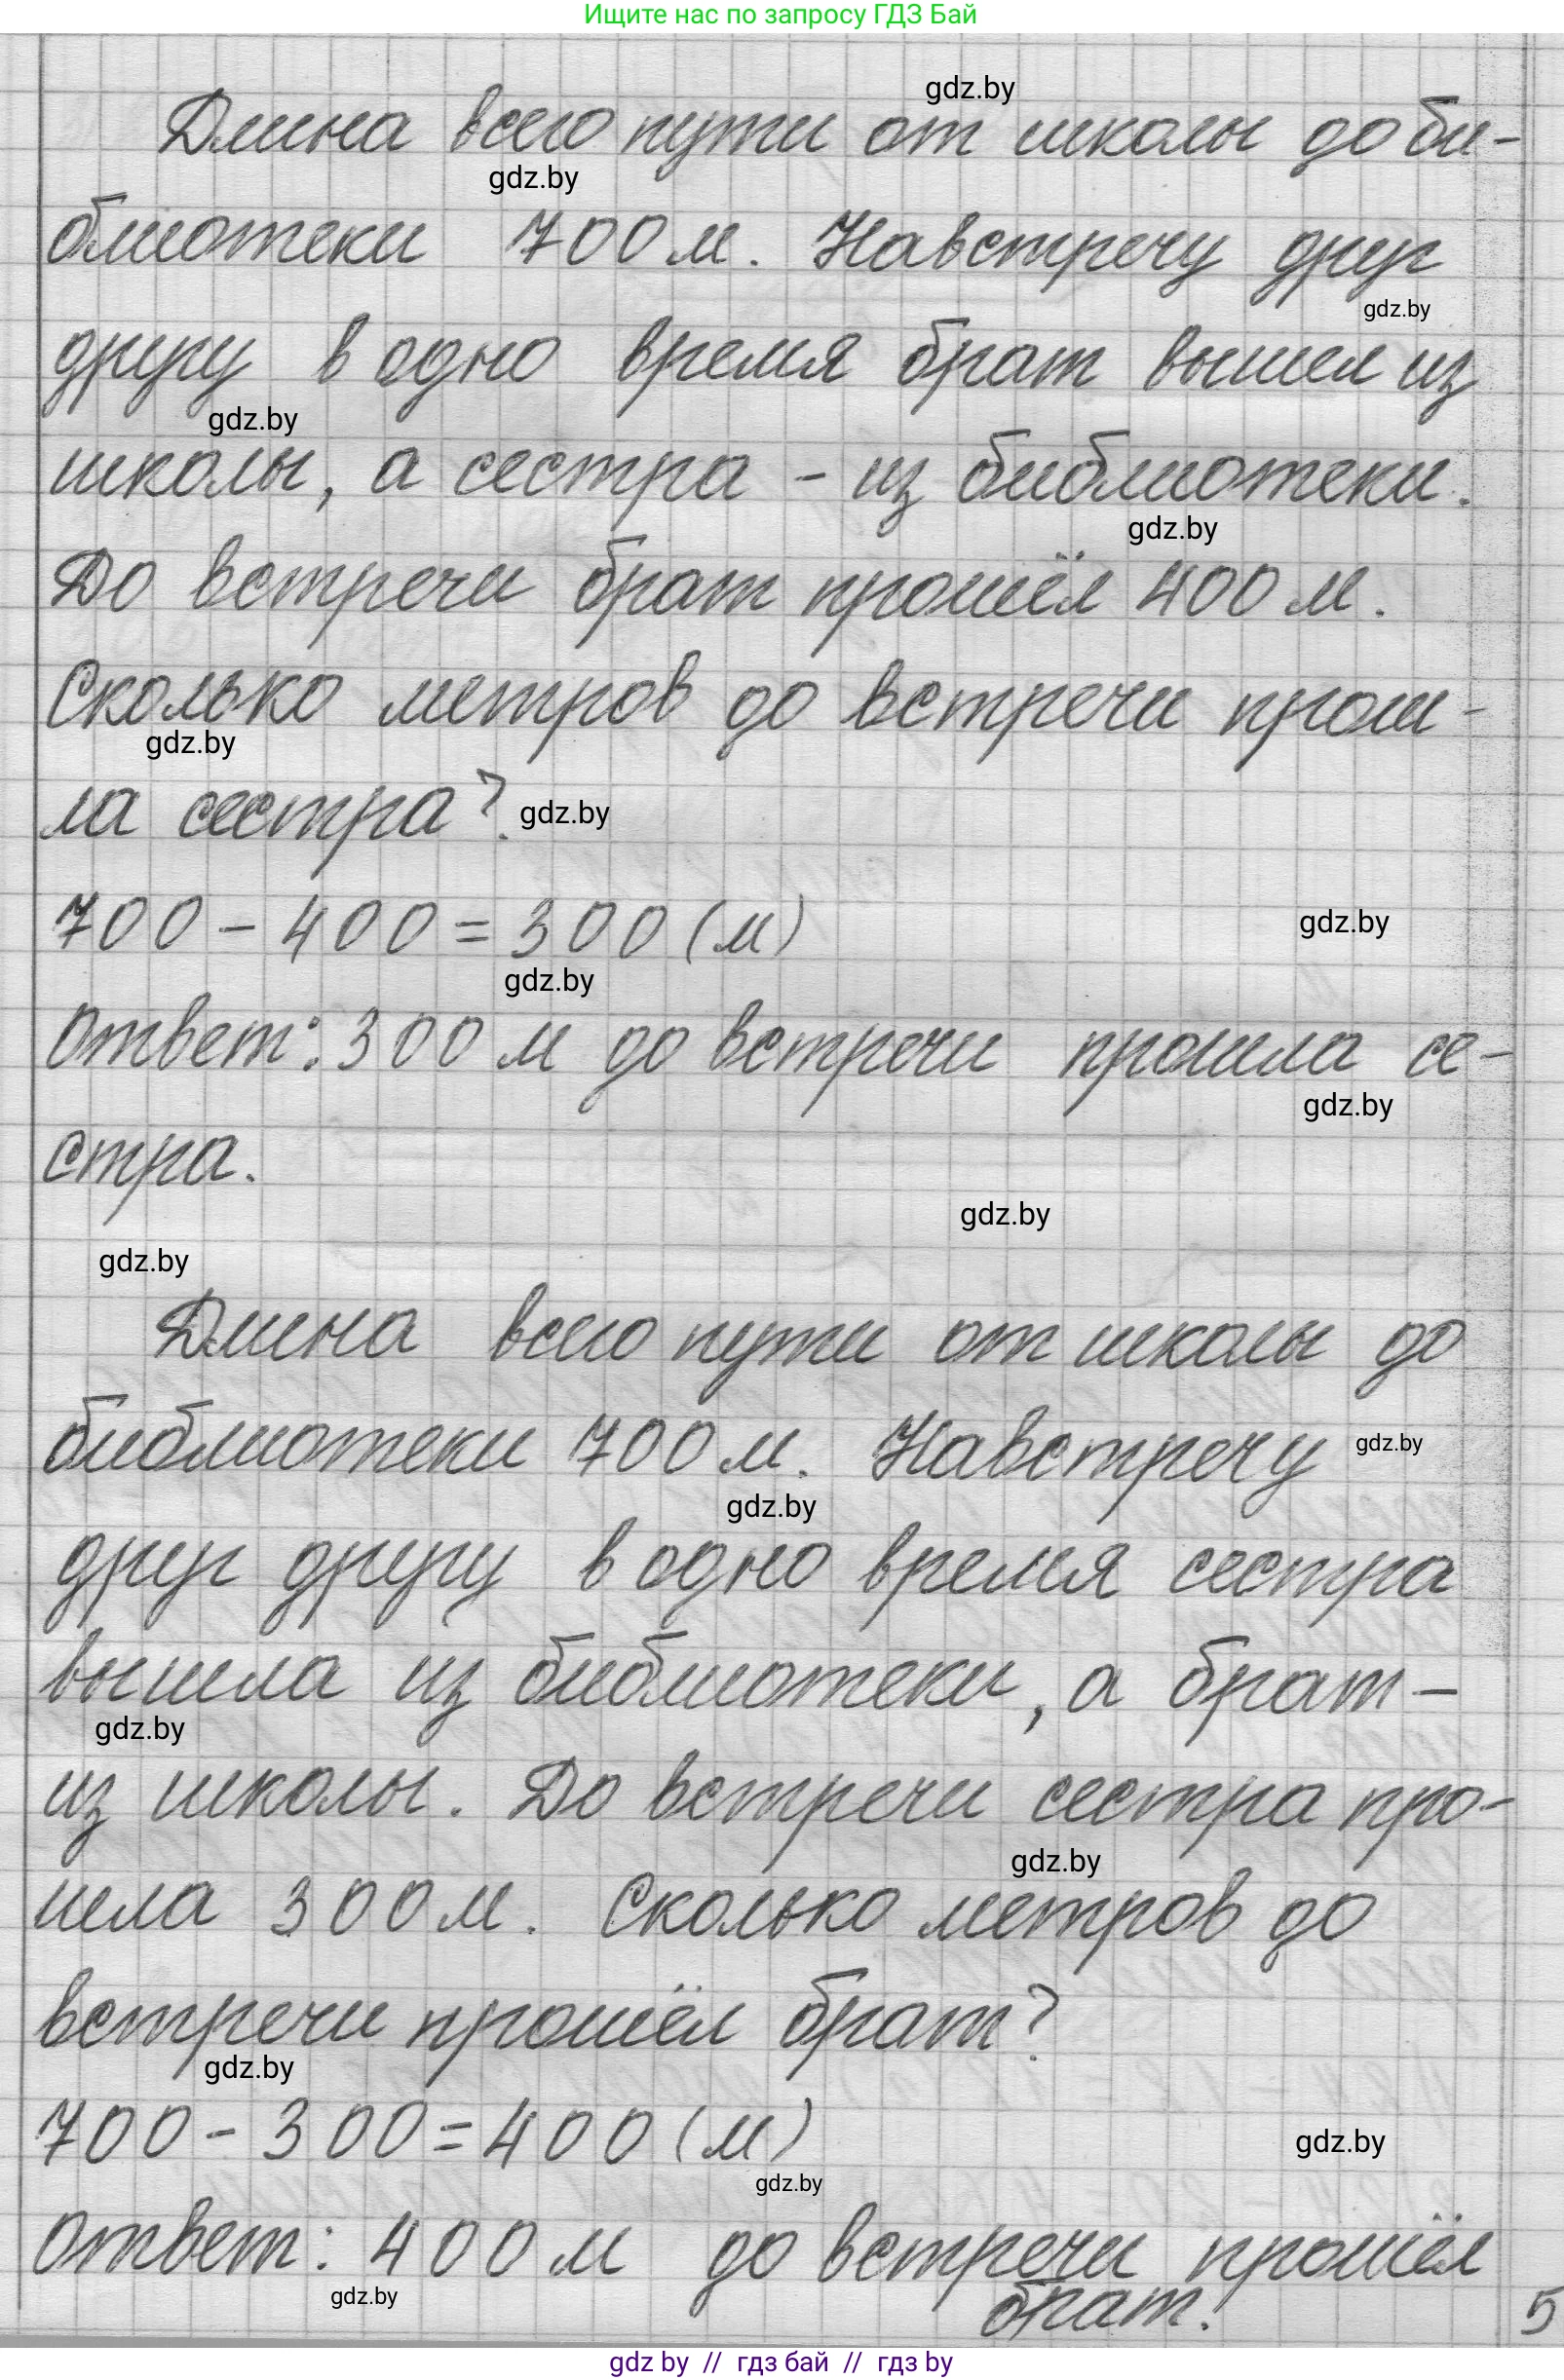 Ищите нас по запросу ГДЗ Бай
gdz.by
Длина всего пути от школы до би-
gdz.by
блиотеки 700 м. Навстречу друг
gdz.by
другу в одно время брат вышел из
gdz.by
школы, а сестра - из библиотеки.
gdz.by
До встречи брат прошёл 400 м.
Сколько метров до встречи прош-
gdz.by
ла сестра? gdz.by
700 - 400 = 300 (м)
gdz.by
gdz.by
Ответ: 300 м до встречи прошла се-
gdz.by
стра.
gdz.by
gdz.by
Длина всего пути от школы до
библиотеки 700 м. Навстречу gdz.by
gdz.by
друг другу в одно время сестра
вышла из библиотеки, а брат -
gdz.by
из школы. До встречи сестра про-
gdz.by
шла 300 м. Сколько метров до
встречи прошёл брат?
gdz.by
700 - 300 = 400 (м)
gdz.by
gdz.by
Ответ: 400 м до встречи прошёл
gdz.by
брат. 5
gdz by // гдз бай // gdz by